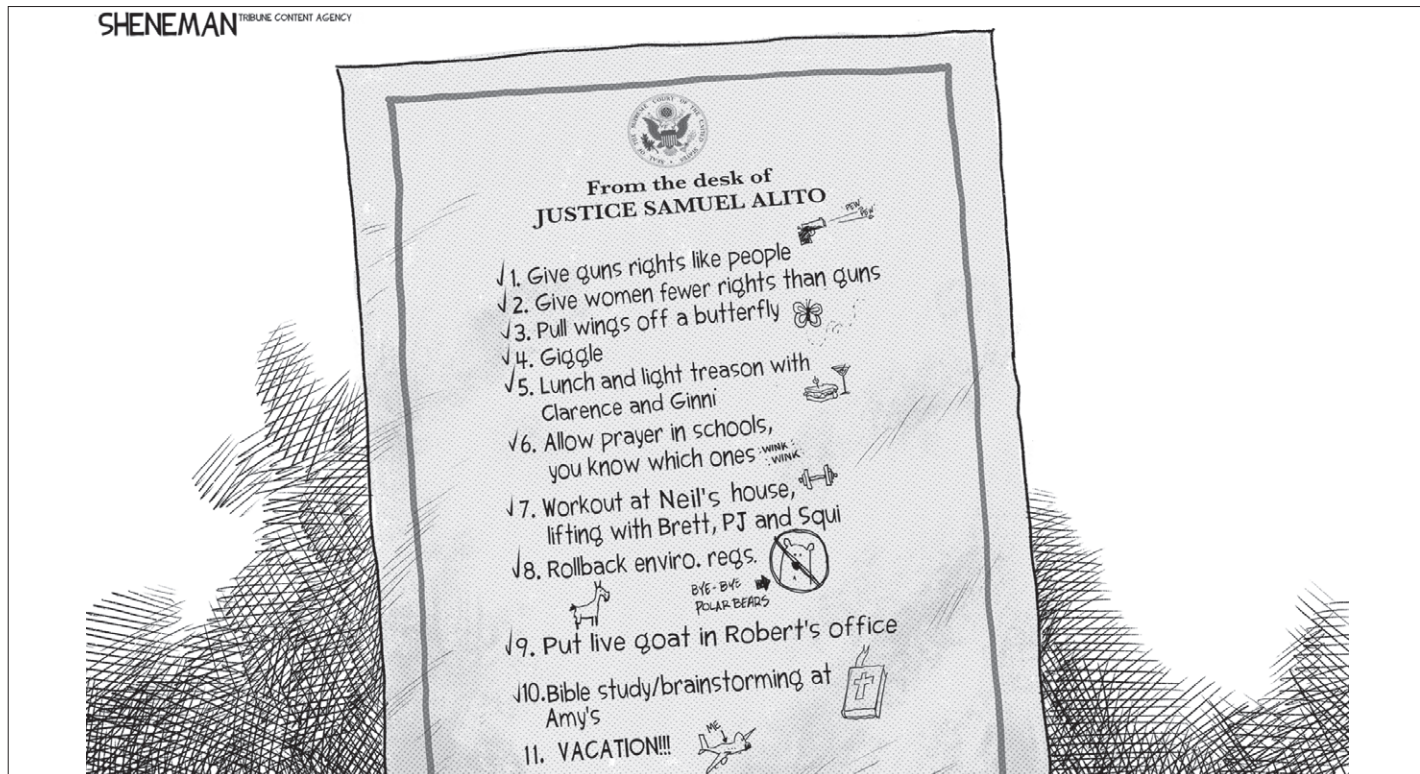 SHENEMAN TRIBUNE CONTENT AGENCY
SEAL OF THE SUPREME COURT OF THE UNITED STATES
From the desk of
JUSTICE SAMUEL ALITO
PEW
PEW
√1. Give guns rights like people
√2. Give women fewer rights than guns
√3. Pull wings off a butterfly
√4. Giggle
√5. Lunch and light treason with
Clarence and Ginni
√6. Allow prayer in schools,
you know which ones WINK
WINK
√7. Workout at Neil's house,
lifting with Brett, PJ and Squi
√8. Rollback enviro. regs.
BYE-BYE
POLAR BEARS
√9. Put live goat in Robert's office
√10. Bible study/brainstorming at
Amy's
ME
11. VACATION!!!